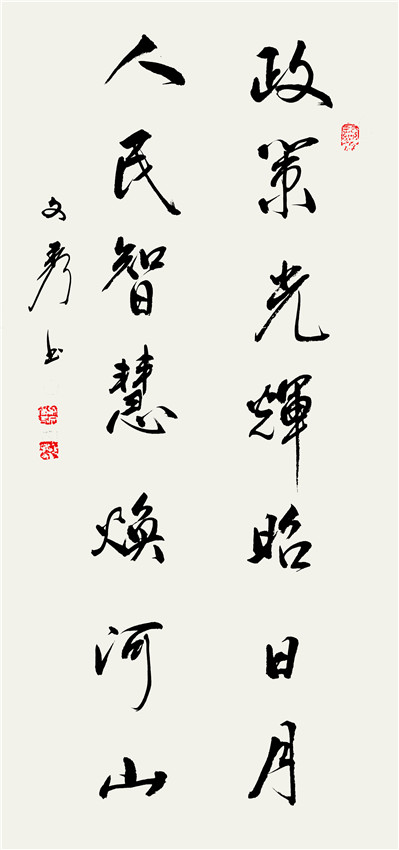 政策光輝昭日月
人民智慧焕河山
文秀书